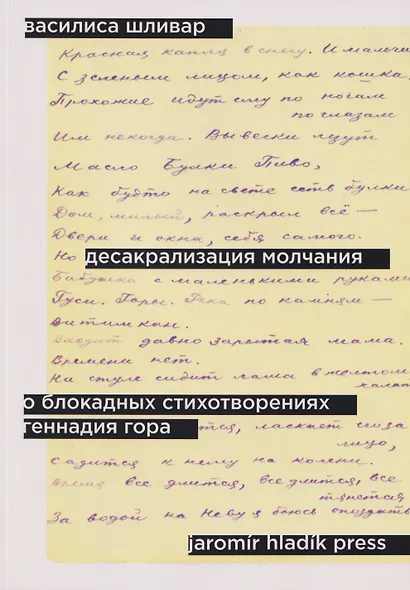 василиса шливар
Красная капля в снегу. И мальчик
С зеленым лицом, как кошка.
Прохожие идут ему по ногам
по глазам
Им некогда. Вывески лезут
Масло Булки Пиво,
Как будто на свете есть булки
Дом, милый, раскрыл всё —
Двери и окна, себя самого.
Но
десакрализация молчания
Бабушка с маленькими руками
Гуси. Горы. Река по камням —
Витимкон.
Входит давно зарытая мама.
Времени нет.
На стуле сидит лама в желтом
халате
о блокадных стихотворениях
геннадия гора
ется, ласкает глаза
лицо,
Садится к нему на колени.
Время все длится, все длится, все
тянется
За водой на Неву я боюсь опоздать
jaromír hladík press